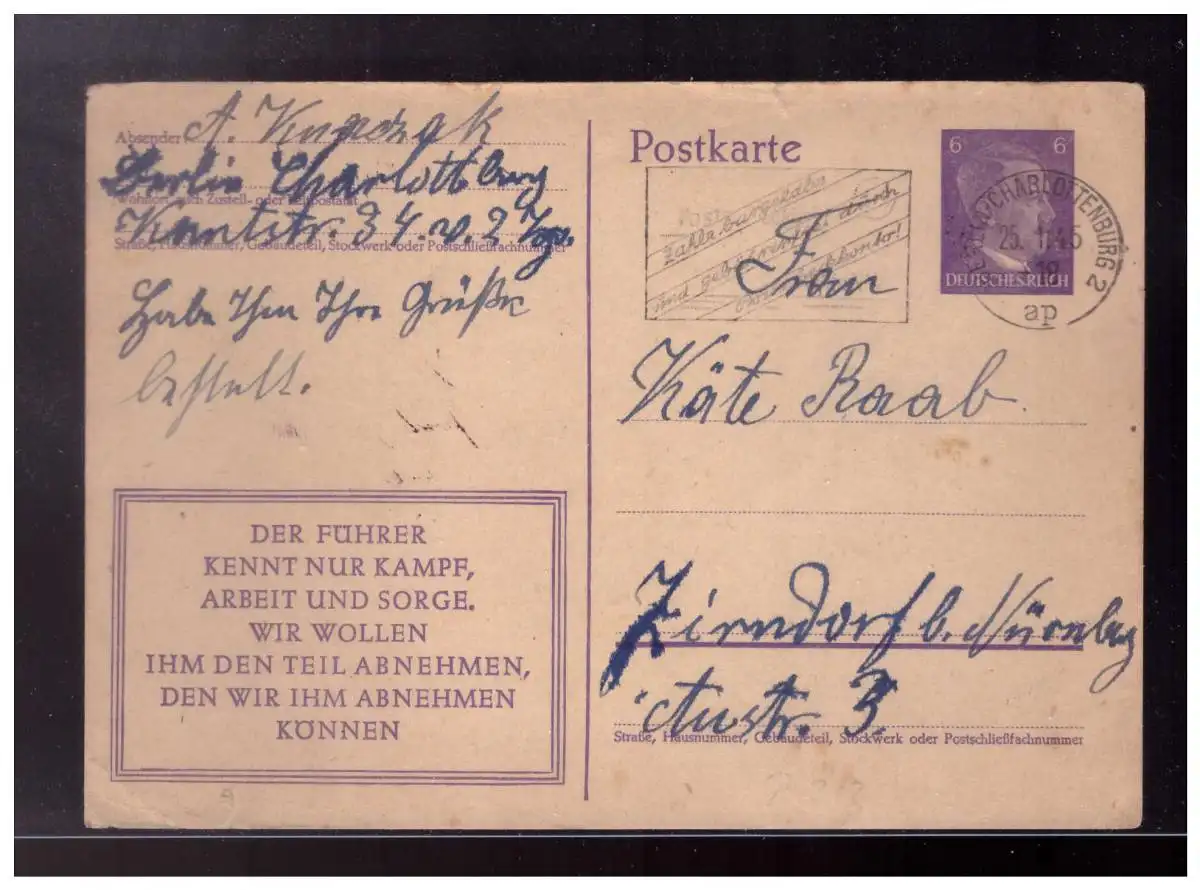 Absender A. Knaczak
Berlin Charlottbburg
Wohnort, auch Zustell- oder Leitpostamt
Kantstr. 34. v. 2 Trp.
Straße, Hausnummer, Gebäudeteil, Stockwerk oder Postschließfachnummer
Habe Ihm Ihre Grüße
bestellt.
DER FÜHRER
KENNT NUR KAMPF,
ARBEIT UND SORGE.
WIR WOLLEN
IHM DEN TEIL ABNEHMEN,
DEN WIR IHM ABNEHMEN
KÖNNEN
Postkarte
6 6
DEUTSCHES REICH
CHARLOTTENBURG 2
25. 11.45
ap
Zahle bargeldlos
und gebührenfrei durch
Postscheckkonto!
Frau
Käte Raab
Zirndorf b. Nürnbg
Austr. 3
Straße, Hausnummer, Gebäudeteil, Stockwerk oder Postschließfachnummer